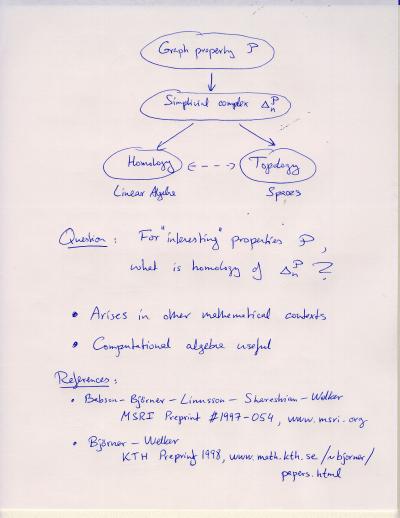 Graph property P
Simplicial complex Δₙᴾ
Homology <---> Topology
Linear Algebra Spaces
Question: For "interesting" properties P,
what is homology of Δₙᴾ ?
• Arises in other mathematical contexts
• Computational algebra useful
References:
• Babson – Björner – Linusson – Shareshian – Welker
MSRI Preprint #1997-054, www.msri.org
• Björner – Welker
KTH Preprint 1998, www.math.kth.se/~bjorner/
papers.html